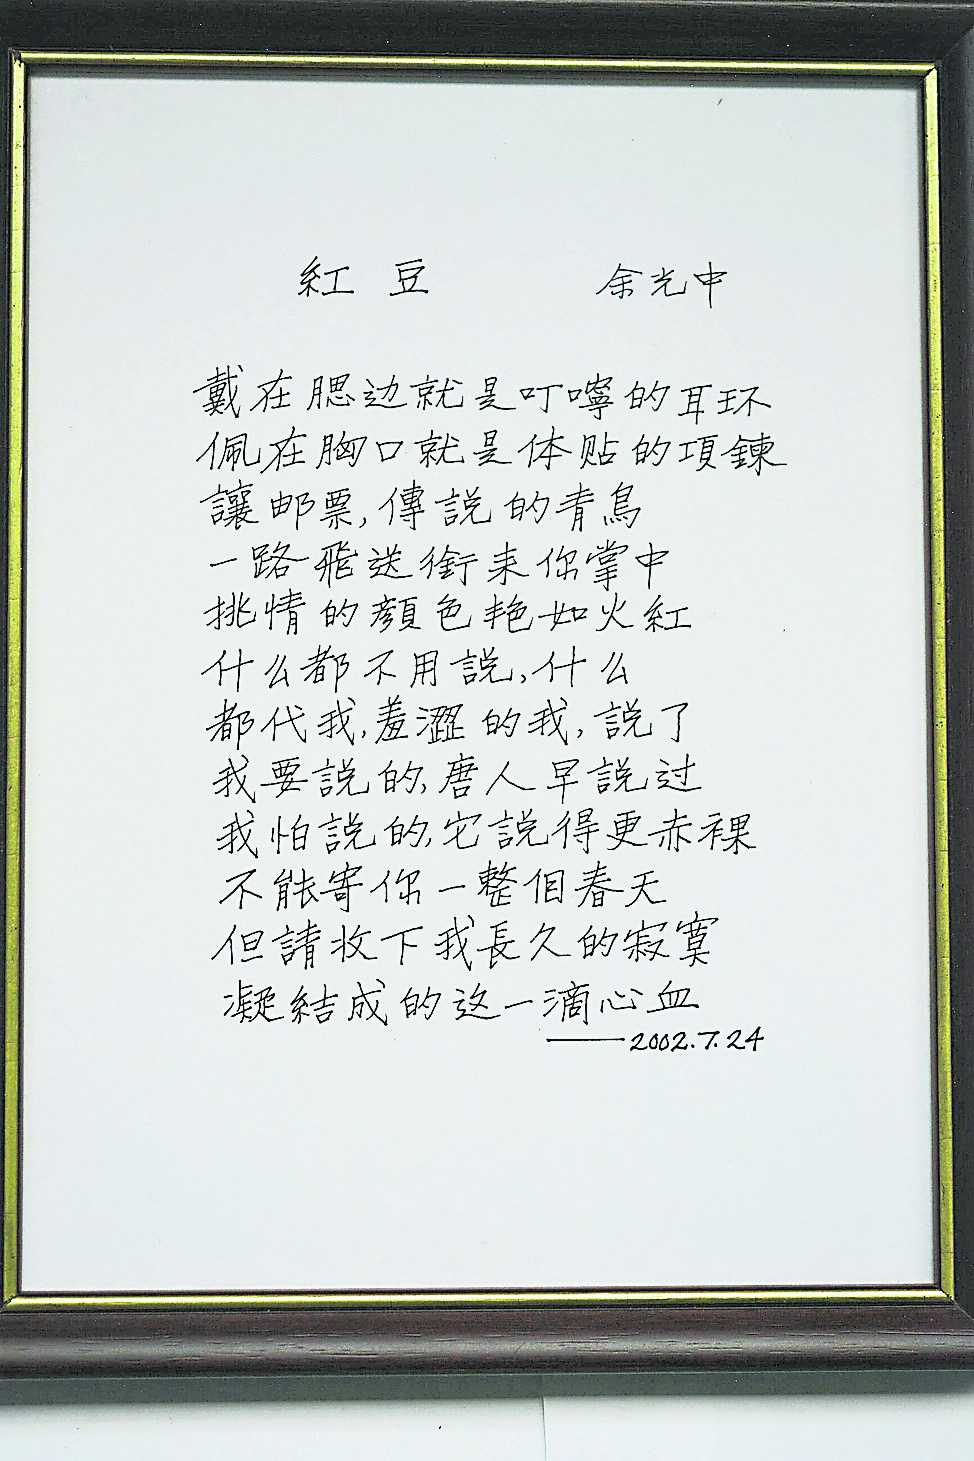 紅豆 余光中
戴在腮边就是叮嚀的耳环
佩在胸口就是体贴的項鍊
讓邮票,傳説的青鳥
一路飛送銜来你掌中
挑情的顔色艳如火紅
什么都不用説,什么
都代我,羞澀的我,説了
我要説的,唐人早説过
我怕説的,它説得更赤裸
不能寄你一整個春天
但請收下我長久的寂寞
凝結成的这一滴心血
——2002.7.24